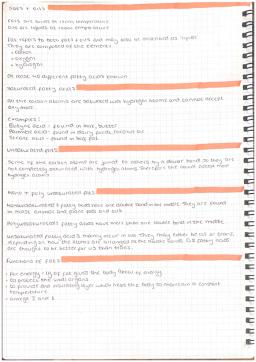 Fats + oils
Fats are solids at room temperature
Oils are liquids at room temperature
Fat refers to both fats + oils and may also be described as 'lipids'
They are composed of the elements:
• carbon
• oxygen
• hydrogen
At least 40 different fatty acids known
Saturated fatty acids
All the carbon atoms are saturated with hydrogen atoms and cannot accept any more
Examples:
Butyric acid - found in butter
Palmitic acid - found in dairy foods,
Stearic acid - found in beef fat
Unsaturated fats
Some of the carbon atoms are joined to others by a double bond so they are
not completely saturated with hydrogen atoms. Therefore they could accept more
hydrogen atoms
Mono + poly unsaturated fats
Monounsaturated fatty acids have one double bond in the middle. They are found
in most animal and plant fats and oils
Polyunsaturated fatty acids have more than one double bond in the middle
Unsaturated fatty acids mainly occur in oils. They may either be cis or trans,
depending on how the atoms are arranged at the double bonds. Cis fatty acids
are thought to be better for us than trans.
Functions of fats
- For energy - 1g of fat gives the body 9kcal of energy
- to protect the vital organs
- to provide an insulating layer which helps the body to maintain a constant
temperature
- omega 3 and 6